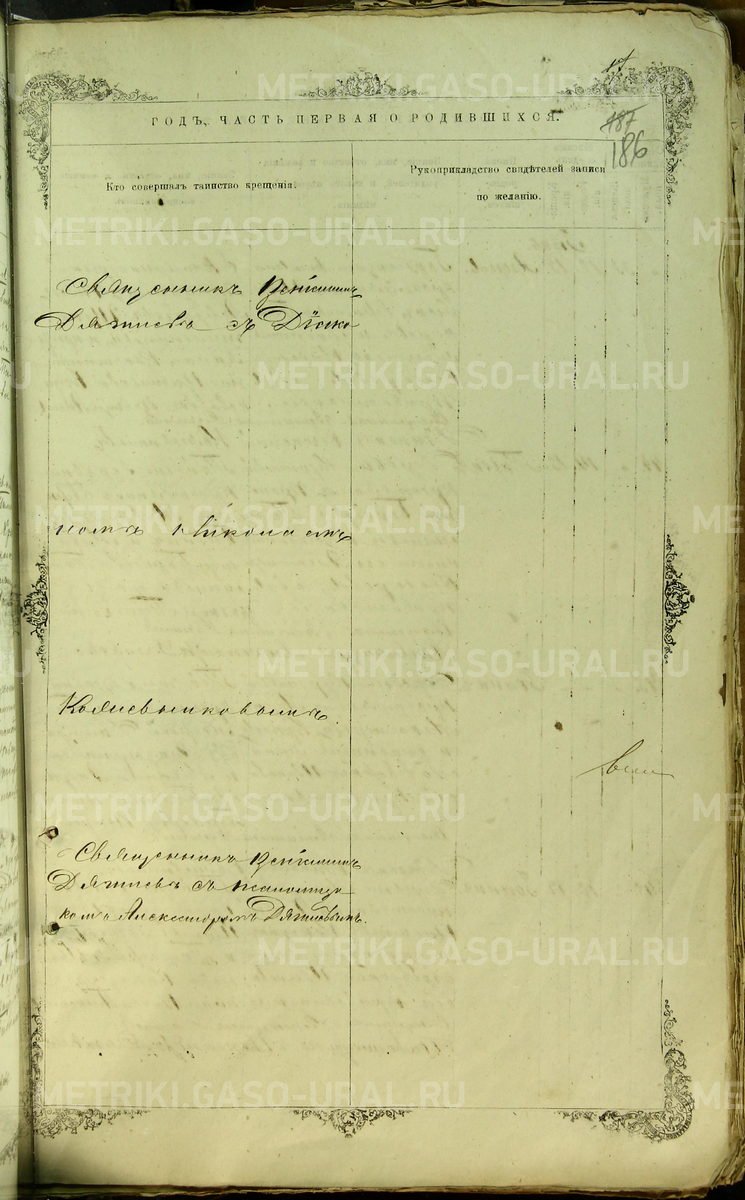 187
186
ГОДЪ, ЧАСТЬ ПЕРВАЯ О РОДИВШИХСЯ.
Кто совершалъ таинство крещенія.
Рукоприкладство свидѣтелей записи
по желанію.
Священникъ Веніаминъ
Дягилевъ съ Діако
номъ Николаемъ
Колмевниковымъ.
Священникъ Веніаминъ
Дягилевъ съ псаломщи
комъ Александромъ Дягилевымъ.
METRIKI.GASO-URAL.RU